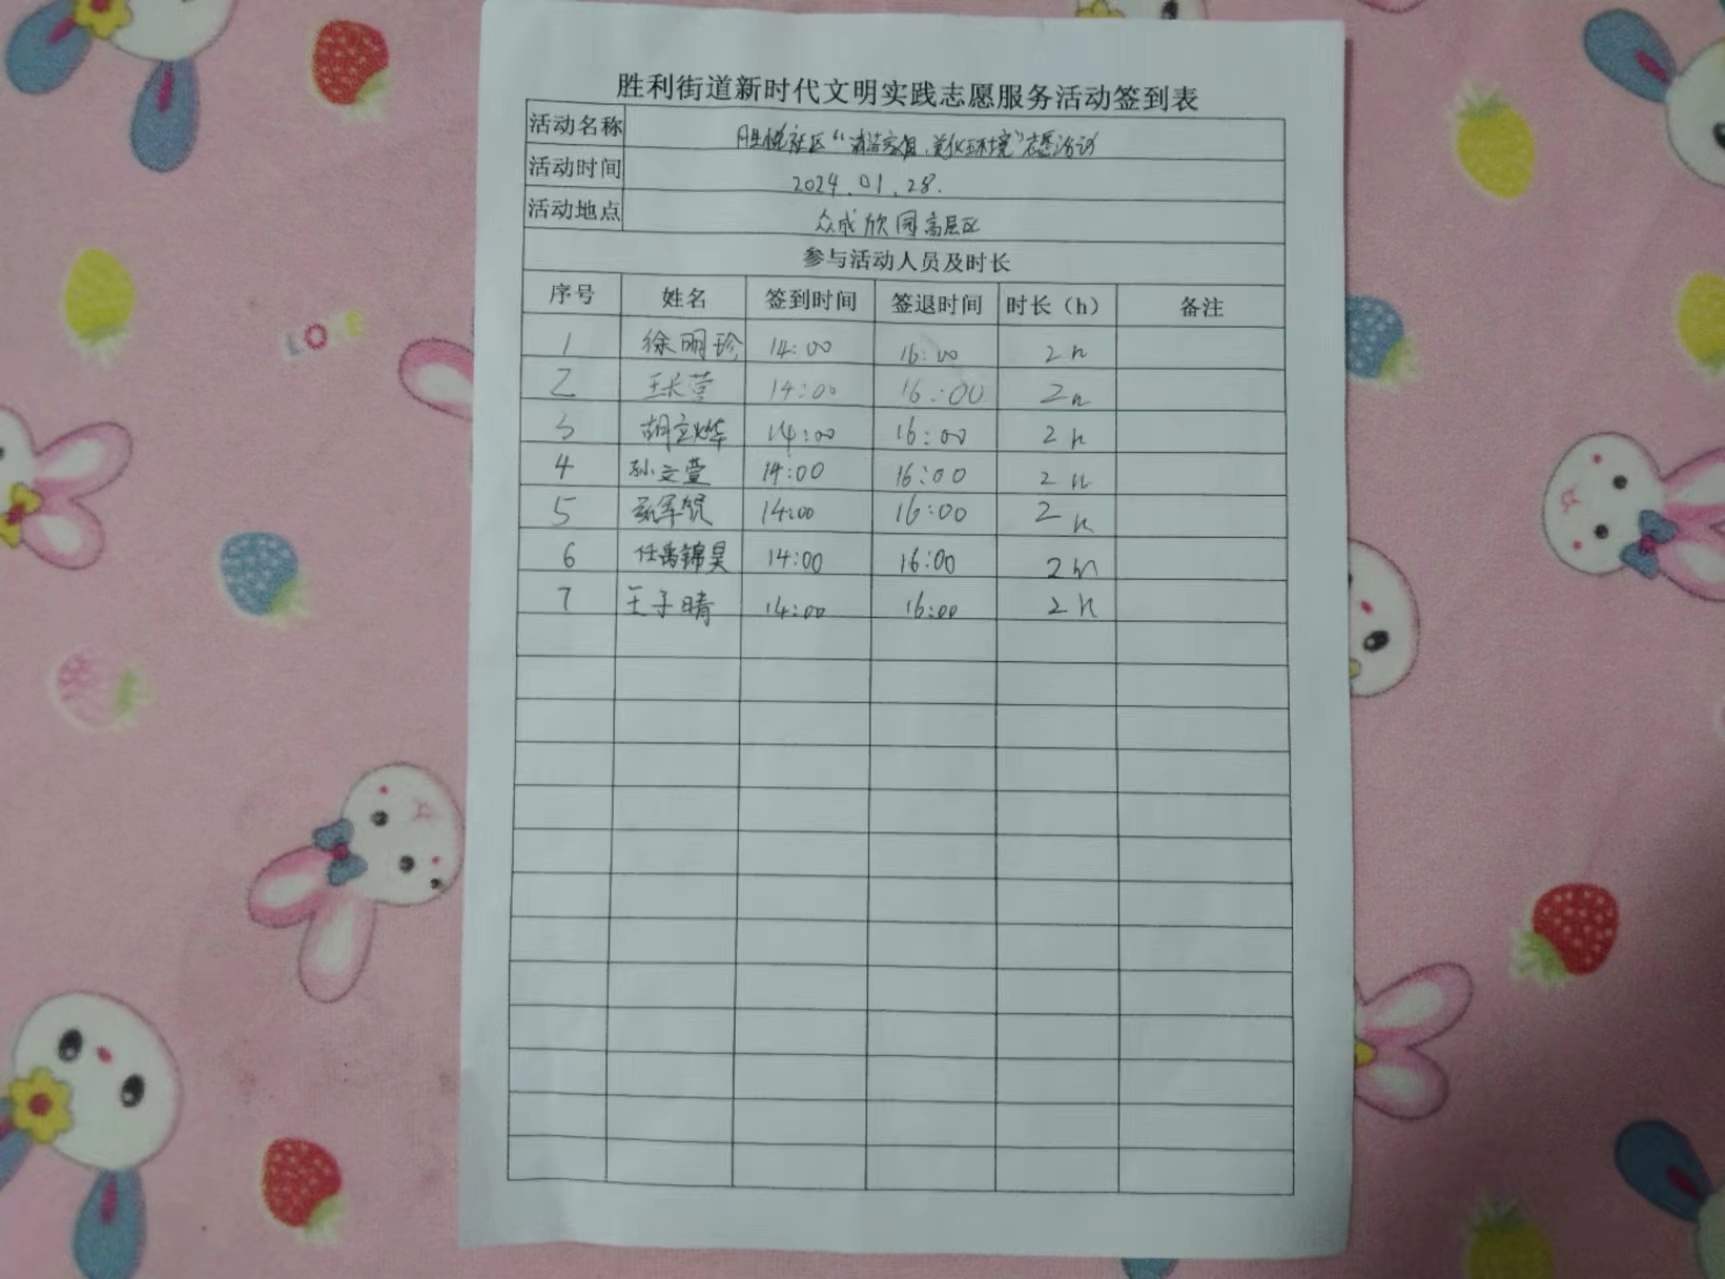 胜利街道新时代文明实践志愿服务活动签到表
活动名称 胜悦社区“清洁家园、美化环境”志愿活动
活动时间 2024.01.28.
活动地点 众成欣园高层区
参与活动人员及时长
序号 姓名 签到时间 签退时间 时长（h） 备注
1 徐明珍 14:00 16:00 2h
2 王长莹 14:00 16:00 2h
3 胡立烨 14:00 16:00 2h
4 孙文萱 14:00 16:00 2h
5 14:00 16:00 2h
6 任禹锦昊 14:00 16:00 2h
7 王子晴 14:00 16:00 2h
LOVE